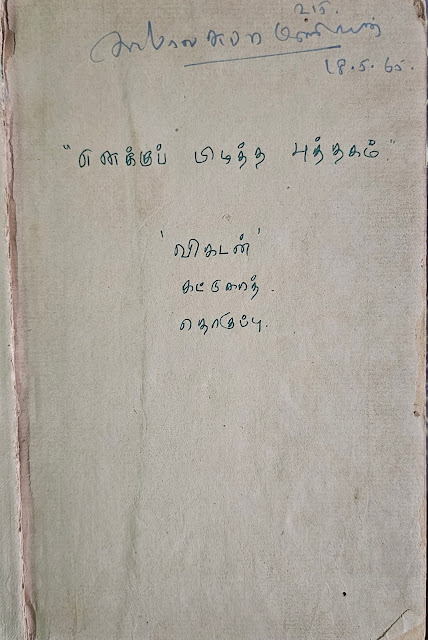 215.
சுப்பிரமணியன்
18.5.65.
"எனக்குப் பிடித்த புத்தகம்"
'விகடன்'
கட்டுரைத்
தொகுப்பு.